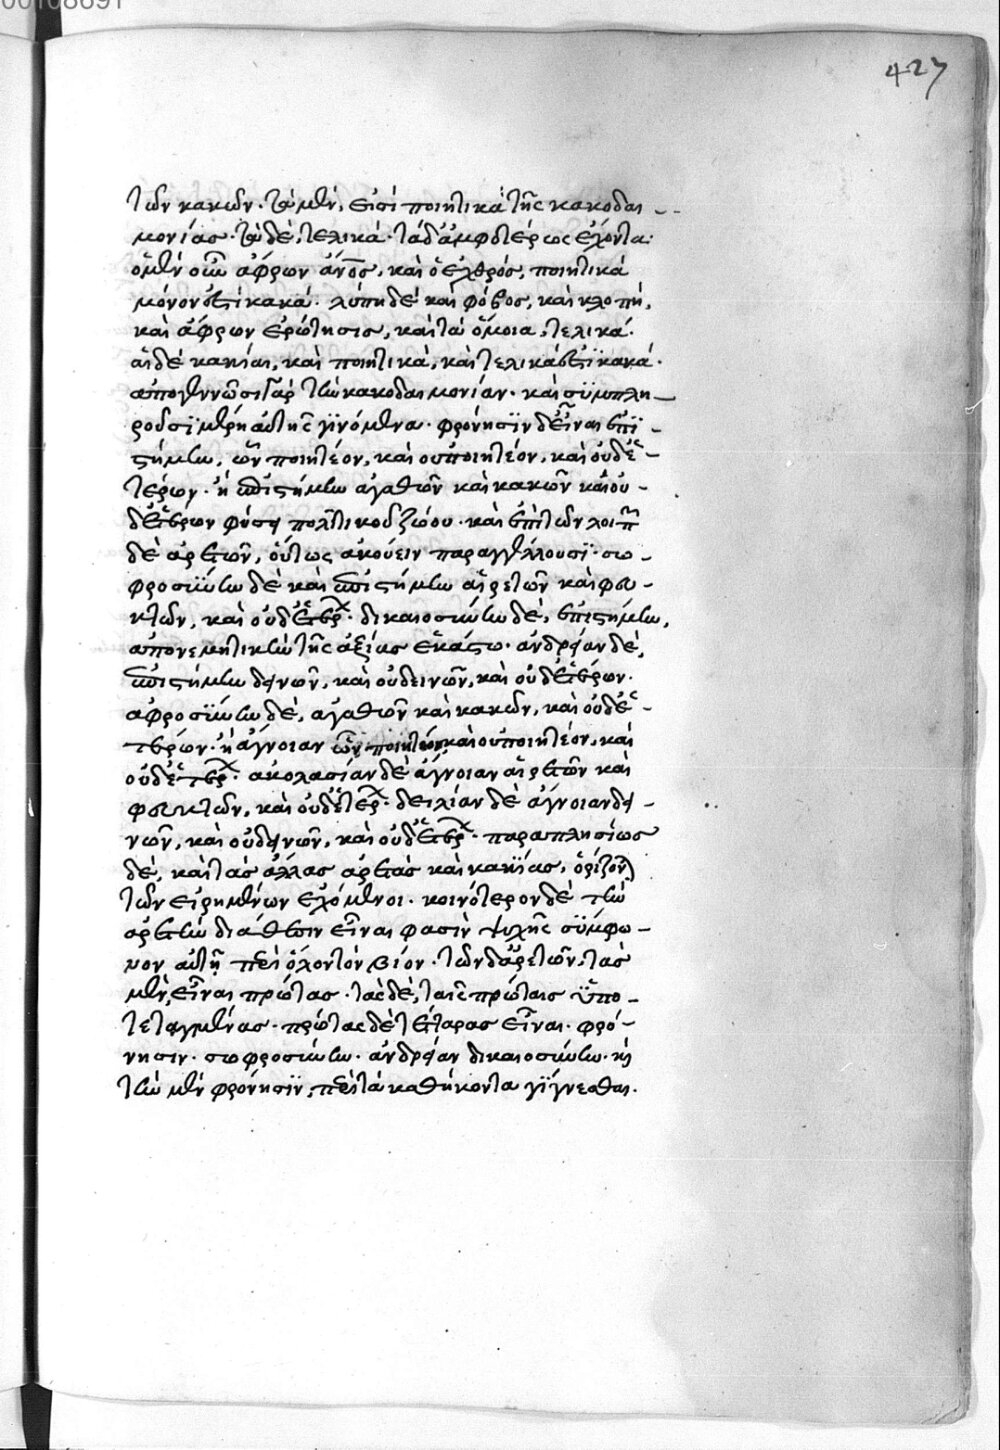 427
τῶν κακῶν· τὰ μὲν, εἰσὶ ποιητικὰ τῆς κακοδαι-
μονίας· τὰ δὲ, τελικά· τὰ δ' ἀμφοτέρως ἔχοντα·
ὁ μὲν οὖν ἄφρων ἄν̅ο̅ς̅, καὶ ὁ ἐχθρός, ποιητικὰ
μόνον ἐστὶ κακά· λύπη δὲ καὶ φόβος, καὶ κλοπὴ,
καὶ ἄφρων ἐρώτησις, καὶ τὰ ὅμοια, τελικά·
αἱ δὲ κακίαι, καὶ ποιητικὰ, καὶ τελικὰ ἐστὶ κακά·
ἀπογεννῶσι γὰρ τὴν κακοδαιμονίαν· καὶ συμπλη-
ροῦσι μέρη αὐτῆς γινόμενα· φρόνησιν δ' εἶναι ἐπι-
στήμην, ὧν ποιητέον, καὶ οὐ ποιητέον, καὶ οὐδε-
τέρων· ἢ ἐπιστήμην ἀγαθῶν καὶ κακῶν καὶ οὐ-
δετέρων φύσει πολιτικοῦ ζώου· καὶ ἐπὶ τῶν λοιπῶν
δὲ ἀρετῶν, οὕτως ἀκούειν παραγγέλλουσι· σω-
φροσύνην δὲ καὶ ἐπιστήμην αἱρετῶν καὶ φευ-
κτῶν, καὶ οὐδετέρων· δικαιοσύνην δὲ, ἐπιστήμην,
ἀπονεμητικὴν τῆς ἀξίας ἑκάστω· ἀνδρείαν δὲ,
ἐπιστήμην δεινῶν, καὶ οὐ δεινῶν, καὶ οὐδετέρων·
ἀφροσύνην δὲ, ἀγαθῶν καὶ κακῶν, καὶ οὐδε-
τέρων· ἢ ἄγνοιαν ὧν ποιητέον, καὶ οὐ ποιητέον, καὶ
οὐδετέρων· ἀκολασίαν δὲ ἄγνοιαν αἱρετῶν καὶ
φευκτῶν, καὶ οὐδετέρων· δειλίαν δὲ ἄγνοιαν δει-
νῶν, καὶ οὐ δεινῶν, καὶ οὐδετέρων· παραπλησίως
δὲ, καὶ τὰς ἄλλας ἀρετὰς καὶ κακίας, ὁρίζονται
τῶν εἰρημένων ἐχόμενοι· κοινότερον δὲ τὴν
ἀρετὴν διάθεσιν εἶναι φασὶν ψυχῆς σύμφω-
νον αὐτῇ περὶ ὅλον τὸν βίον· τῶν δ' ἀρετῶν, τὰς
μὲν, εἶναι πρώτας· τὰς δὲ, ταῖς πρώταις ὑπο-
τεταγμένας· πρώτας δὲ τέτταρας εἶναι· φρό-
νησιν· σωφροσύνην· ἀνδρείαν δικαιοσύνην· καὶ
τὴν μὲν φρόνησιν, περὶ τὰ καθήκοντα γίγνεσθαι·